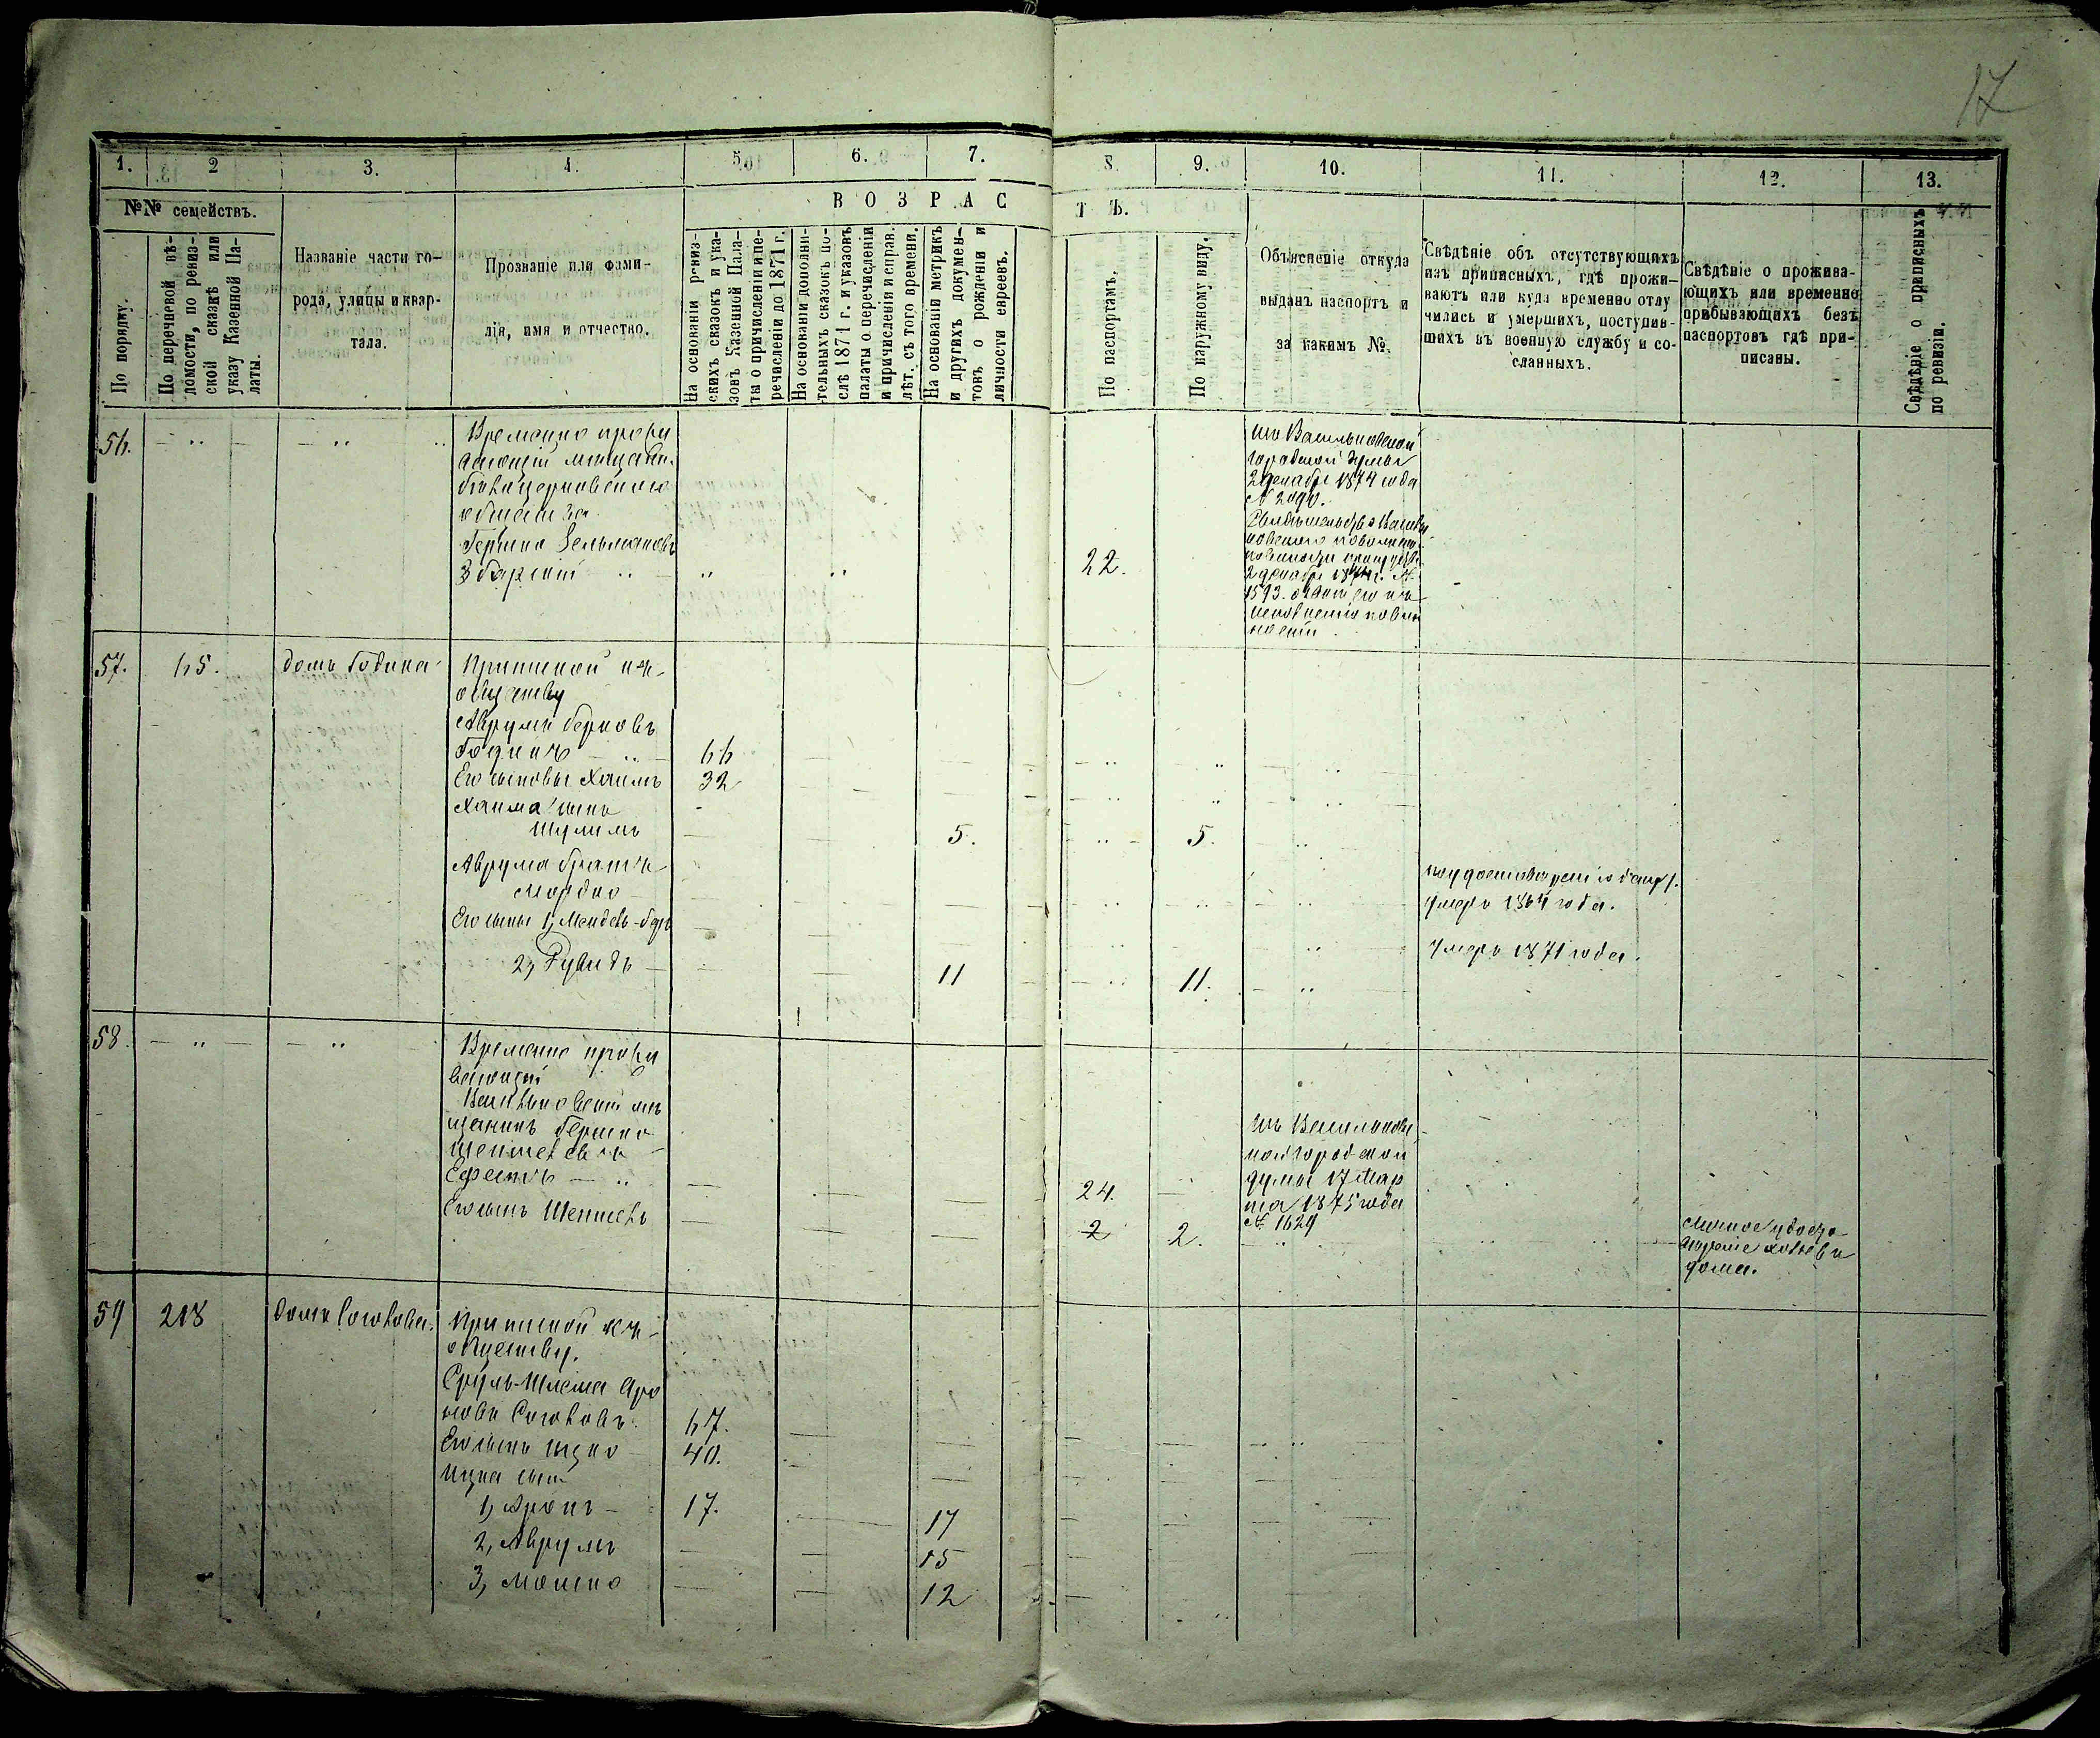 17
1. 2 3. 4. 5. 6. 7. 8. 9. 10. 11. 12. 13.
№№ семействъ.
В О З Р А С Т Ъ.
По порядку.
По перечневой вѣ-
домости, по ревиз-
ской сказкѣ или
указу Казенной Па-
латы.
Названіе части го-
рода, улицы и квар-
тала.
Прозваніе или фами-
лія, имя и отчество.
На основаніи ревиз-
скихъ сказокъ и ука-
зовъ Казенной Пала-
ты о причисленіи и пе-
речисленіи до 1871 г.
На основаніи дополни-
тельныхъ сказокъ по-
слѣ 1871 г. и указовъ
палаты о перечисленіи
и причисленіи и справ.
лѣт. съ того времени.
На основаніи метрикъ
и другихъ докумен-
товъ о рожденіи и
личности евреевъ.
По паспортамъ.
По наружному виду.
Объясненіе откуда
выданъ паспортъ и
за какимъ №.
Свѣдѣніе объ отсутствующихъ
изъ приписныхъ, гдѣ прожи-
ваютъ или куда временно отлу
чились и умершихъ, поступив-
шихъ въ военную службу и со-
сланныхъ.
Свѣдѣніе о прожива-
ющихъ или временно
прибывающихъ безъ
паспортовъ гдѣ при-
писаны.
Свѣдѣніе о приписныхъ
по ревизіи.
56. — „ — — „ „ Временно прожи
вающій мещан.
бѣлоцерковскаго
Гершко Зельмановъ
Збарскій — „ — „ „ 22.
изъ Васильковской
городской думы
2 декабря 1874 года
№ 2090.
Свидѣтельство Василь
ковскаго
2 декабря 1874 г. №
1593.
57. 65. домъ Година Приписной къ
обществу
Аврумъ Берковъ
Годинъ — „ 66
Его сыновья Хаимъ 32
Хаима сынъ
Шулимъ 5. 5.
Аврума братъ
Мордко
умеръ 1864 года.
Его сыны 1, Мендель-Беръ
умеръ 1871 года.
2, Рувидъ — 11 11.
58. — „ — — „ Временно прожи
вающій
Васильковскій мѣ
щанинъ Гершко
Шепшелевъ
Ефектъ — „ 24.
изъ Васильковс
кой городской
думы 17 Мар
та 1875 года
№ 1629
Его сынъ Шепшель 2 2.
личное удосто
вѣреніе хозяевъ
дома.
59 218 домъ Соколова. Приписной къ
обществу.
Сруль-Шлема Аро
новъ Соколовъ. 67.
Его сынъ Ицко 40.
Ицка сын
1, Аронъ — 17. 17
2, Аврумъ 15
3, Мошко 12